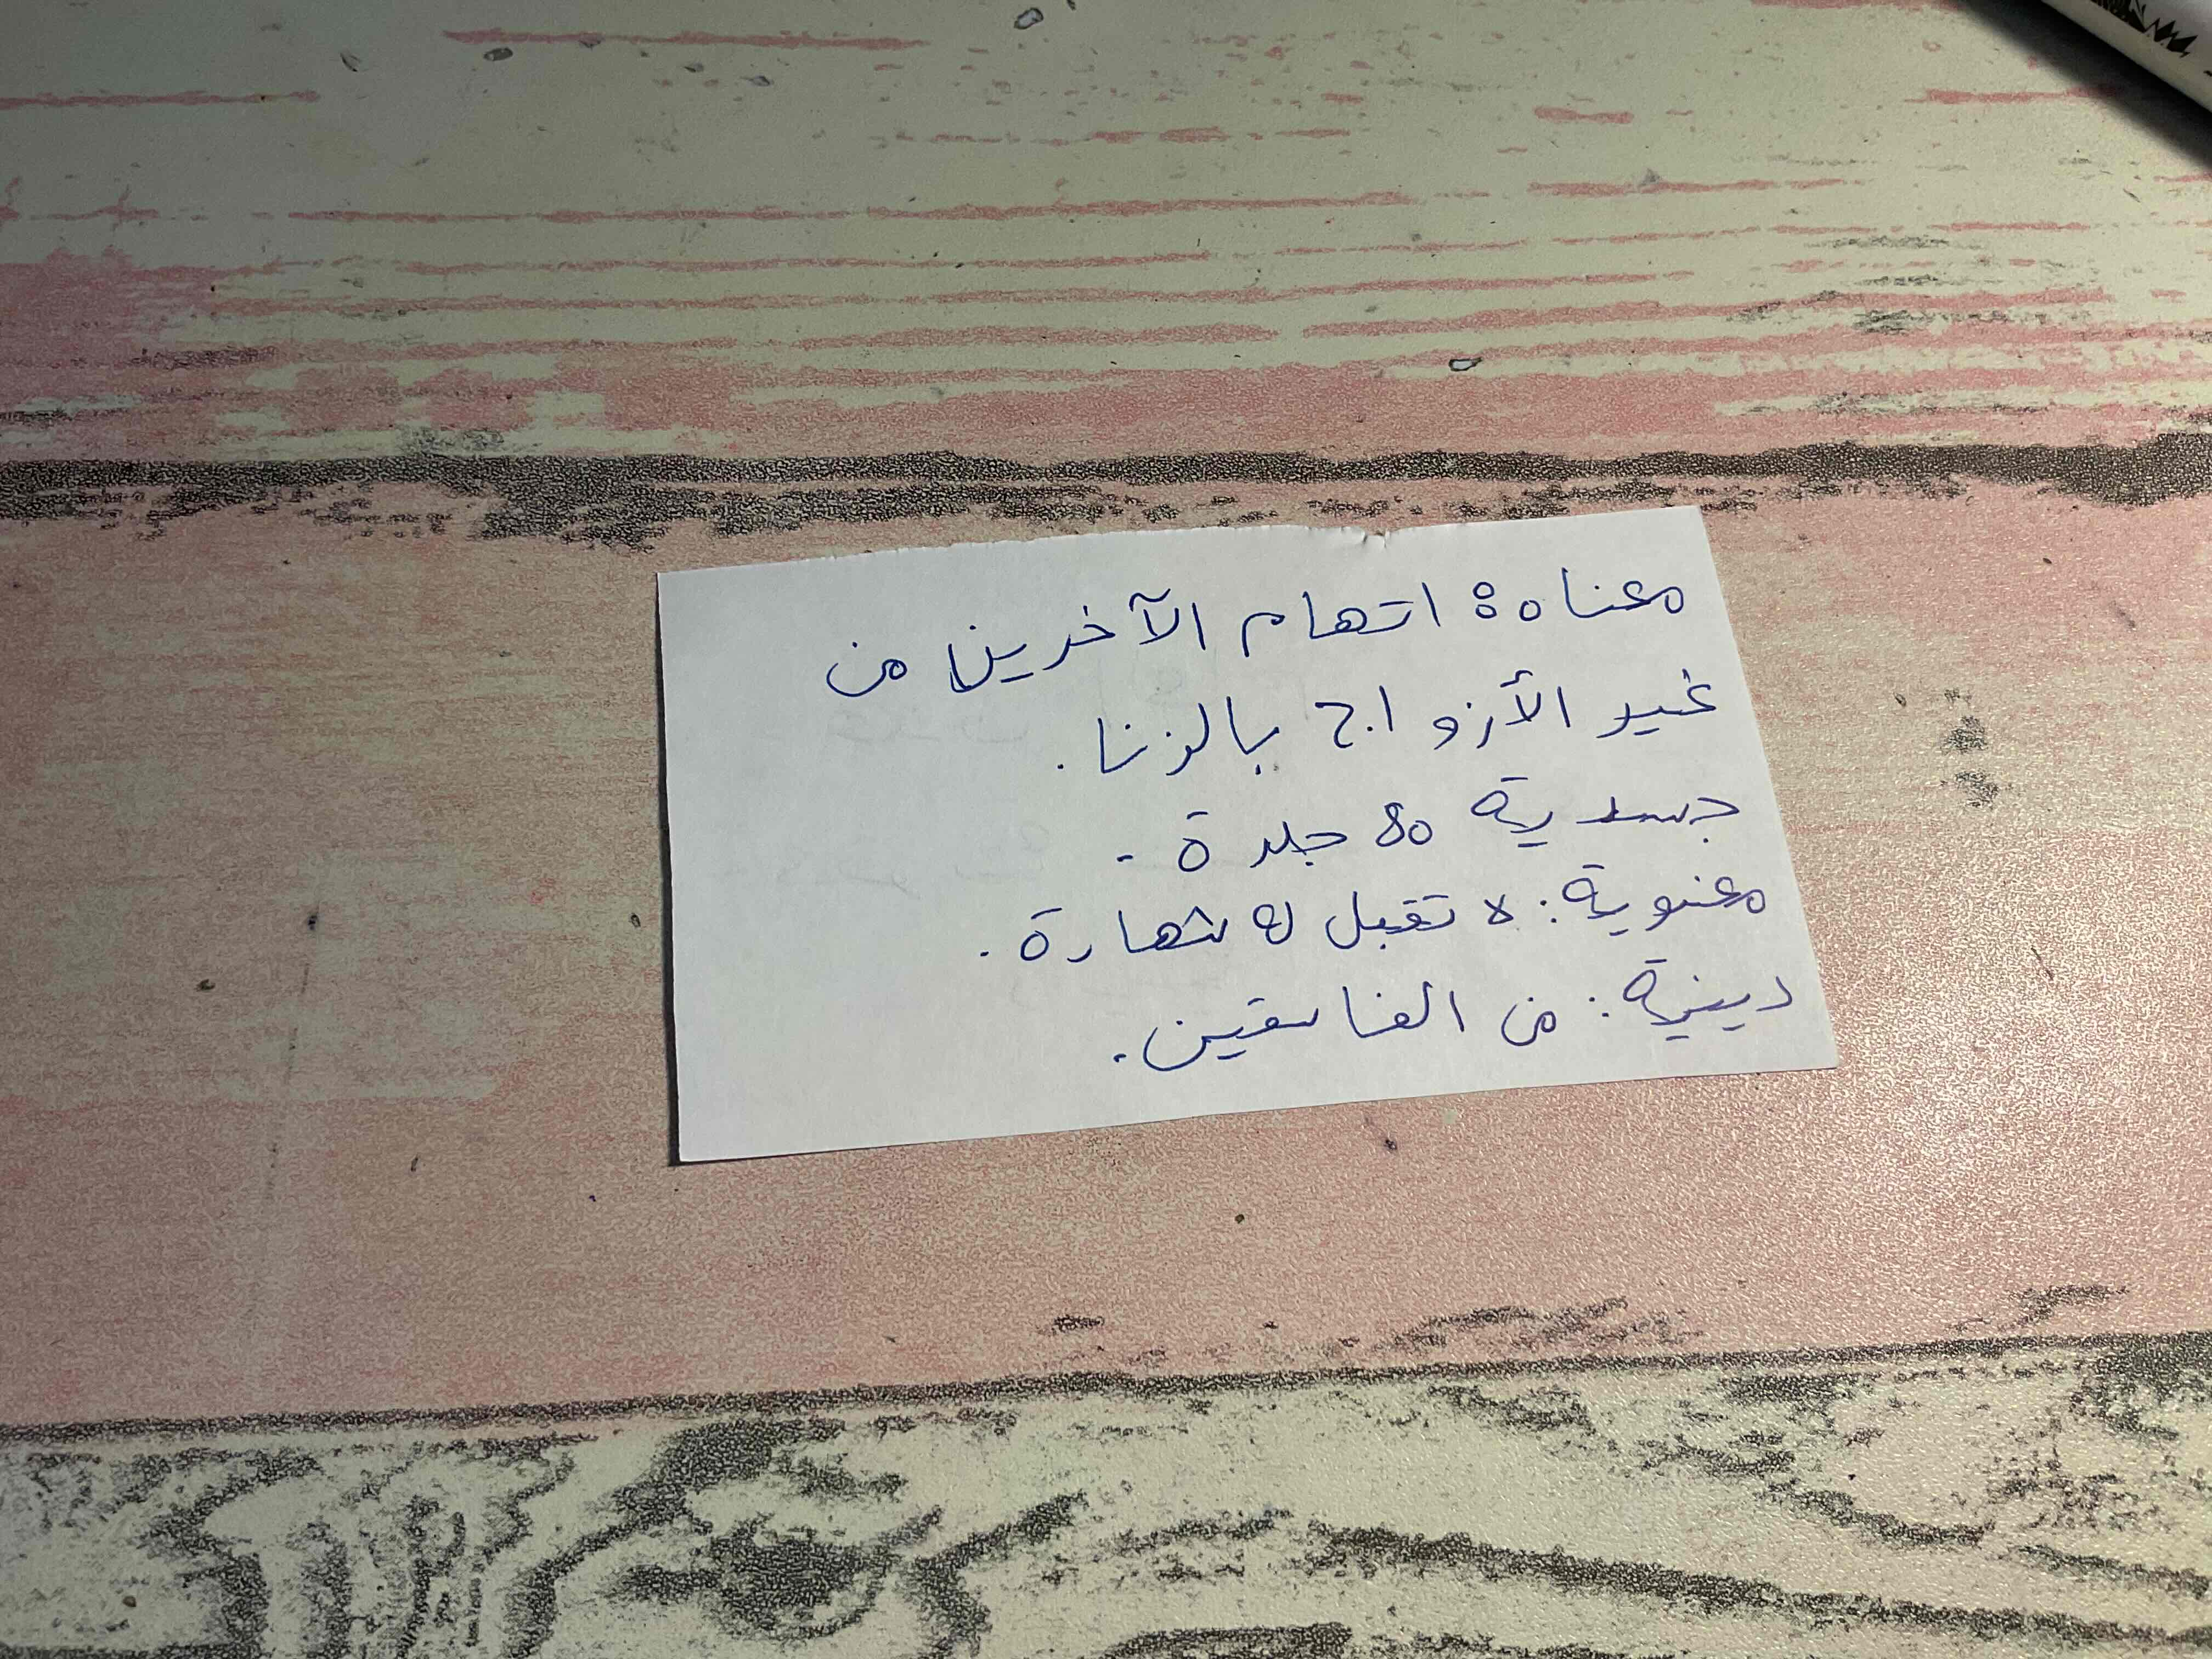 معناه : اتهام الآخرين من
غير الأزواج بالزنا .
جسدية 80 جلدة .
معنوية : لا تقبل له شهادة .
دينية : من الفاسقين .